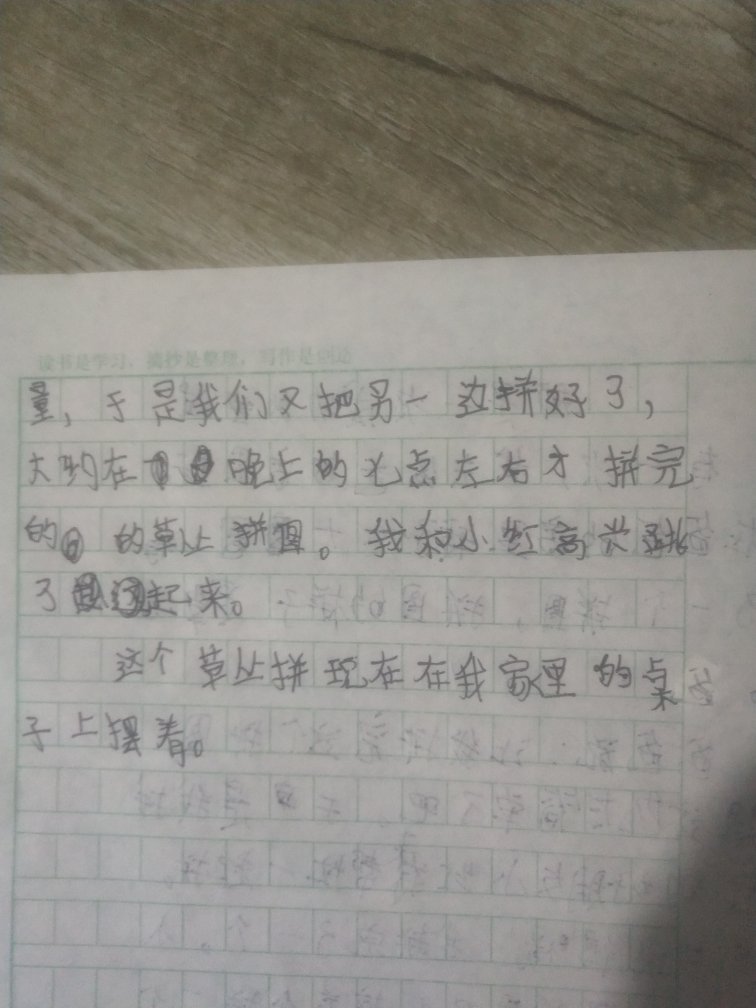 读书是学习，摘抄是整理，写作是创造
量，于是我们又把另一边拼好了，
大约在晚上的七点左右才拼完
的 的草止拼图。我和小红高兴跳
了起来。
这个草止拼现在在我家里的桌
子上摆着。